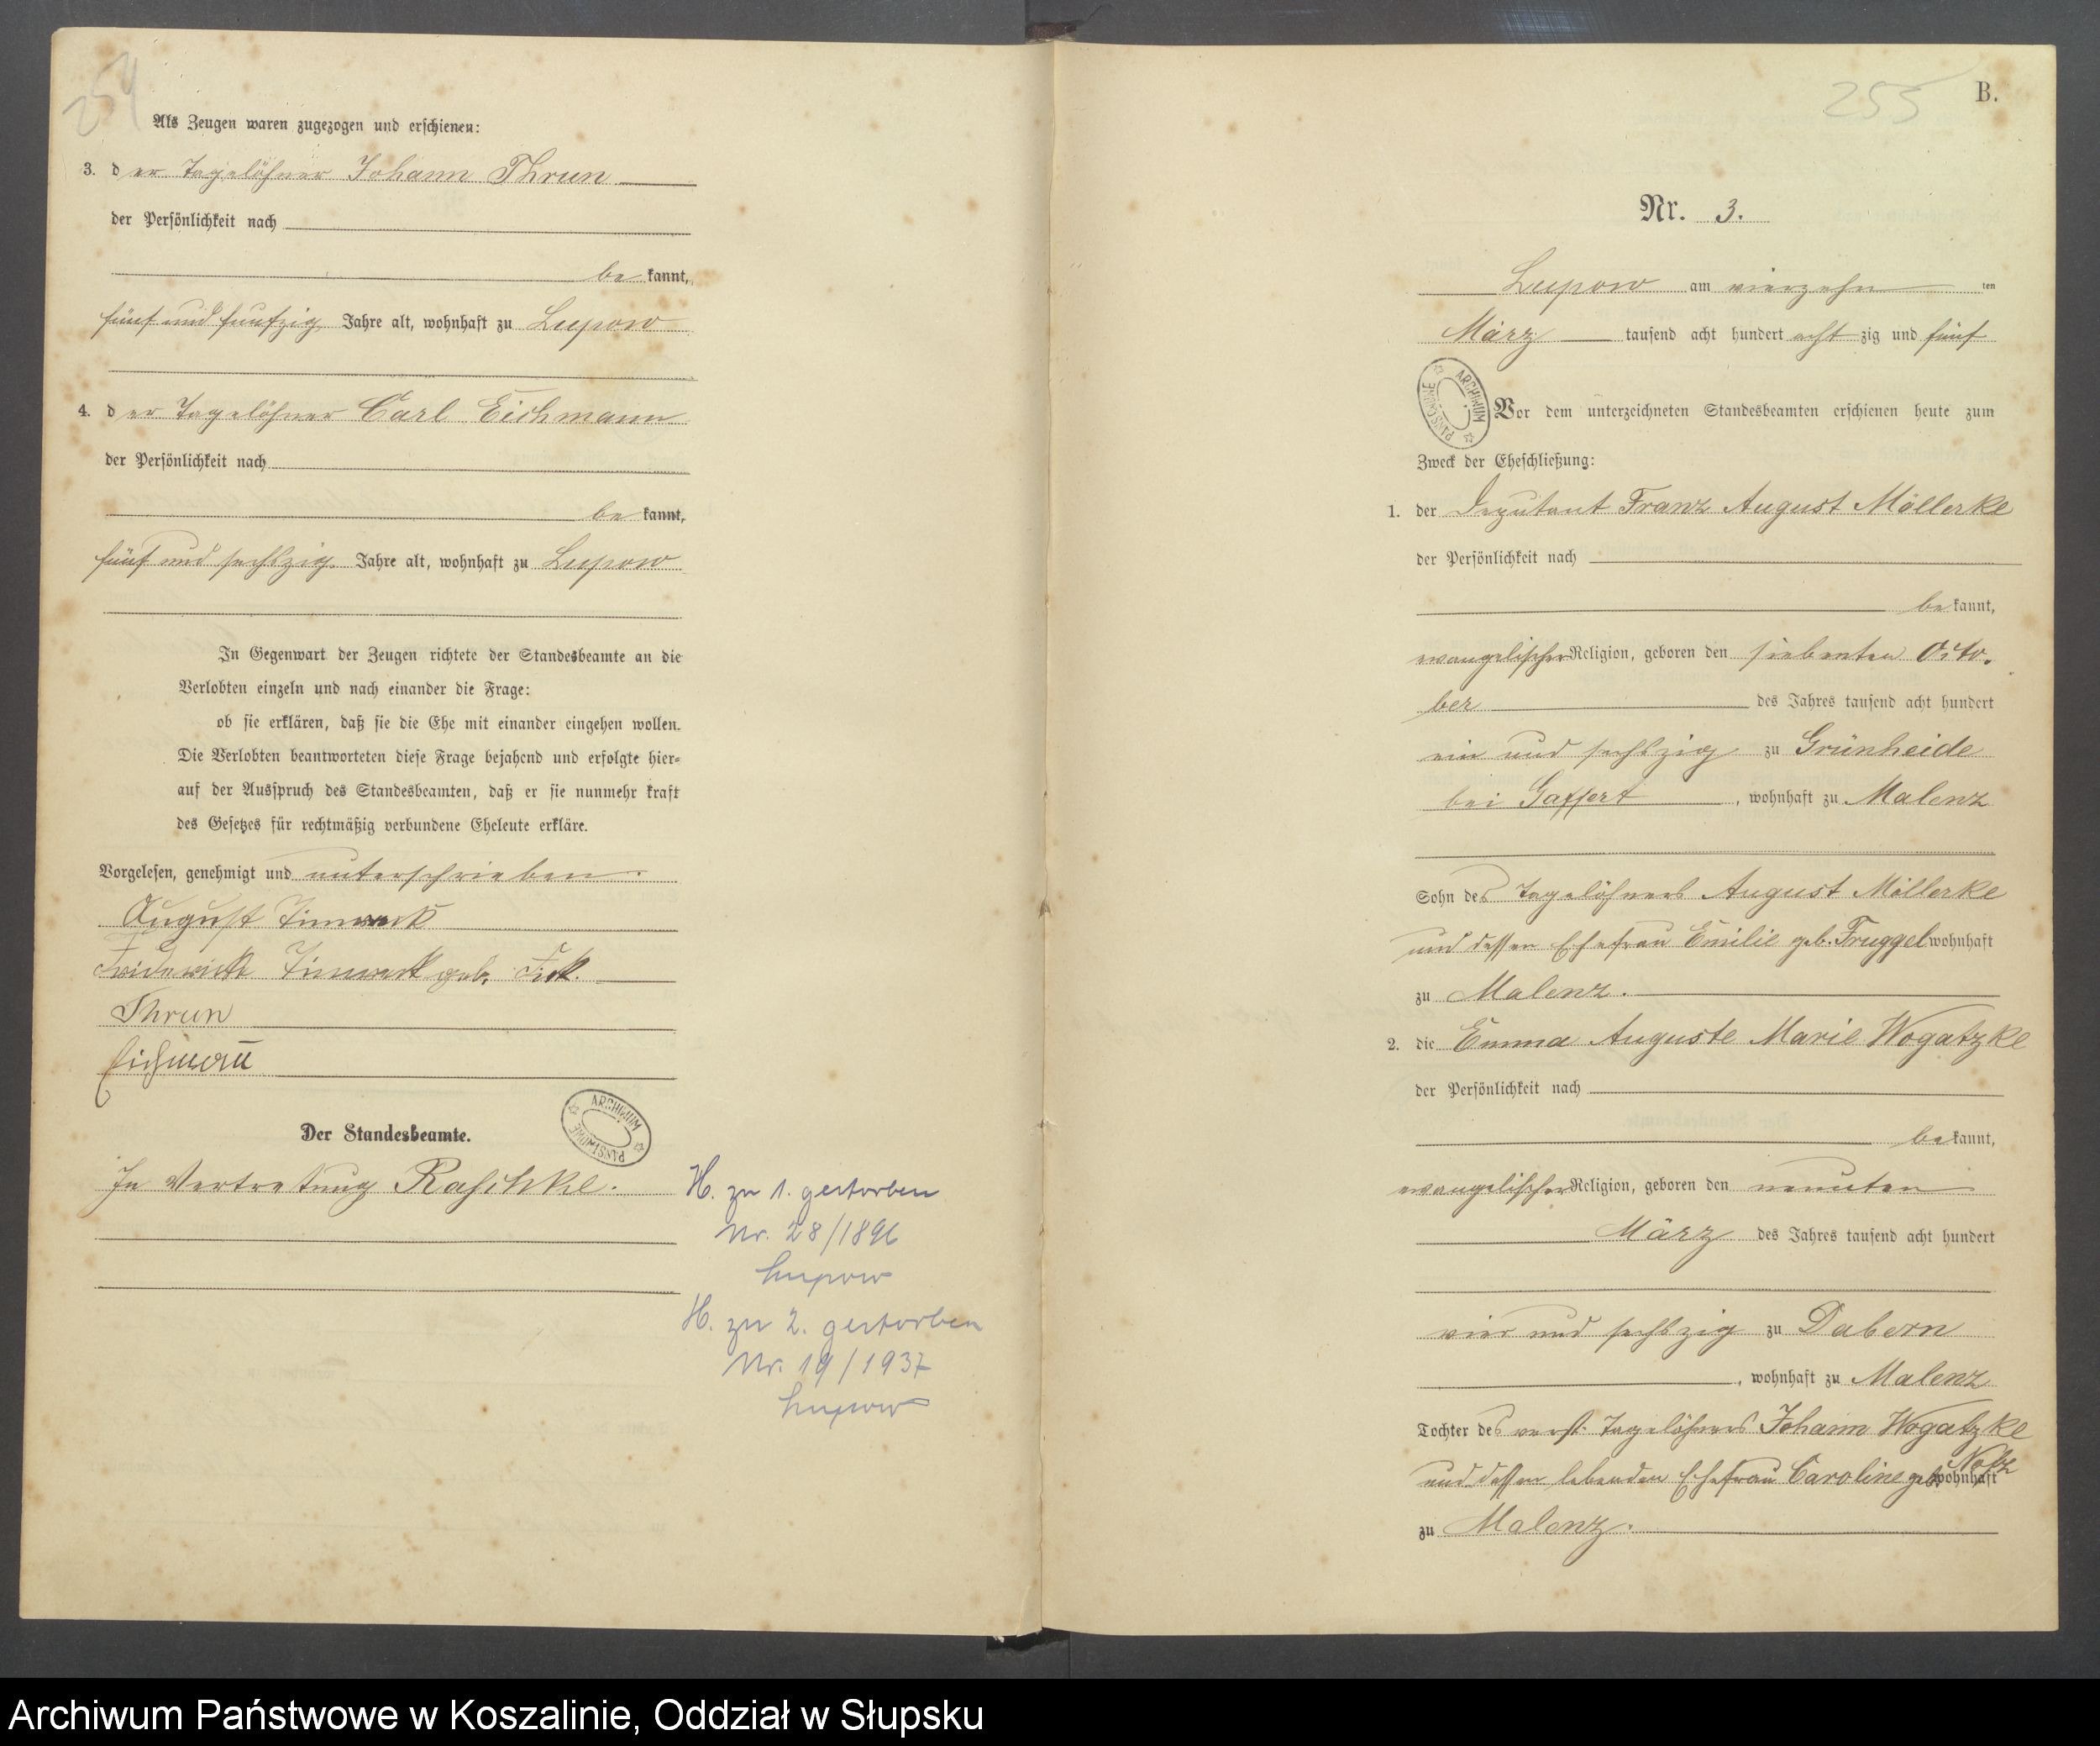 254
Als Zeugen waren zugezogen und erschienen:
3. der Tagelöhner Johann Thrun
der Persönlichkeit nach
be kannt,
fünf und funfzig Jahre alt, wohnhaft zu Lupow
4. der Tagelöhner Carl Eichmann
der Persönlichkeit nach
be kannt,
fünf und sechszig Jahre alt, wohnhaft zu Lupow
In Gegenwart der Zeugen richtete der Standesbeamte an die
Verlobten einzeln und nach einander die Frage:
ob sie erklären, daß sie die Ehe mit einander eingehen wollen.
Die Verlobten beantworteten diese Frage bejahend und erfolgte hier=
auf der Ausspruch des Standesbeamten, daß er sie nunmehr kraft
des Gesetzes für rechtmäßig verbundene Eheleute erkläre.
Vorgelesen, genehmigt und unterschrieben.
August
geb.
Thrun
Eichmañ
Der Standesbeamte.
ARCHIWUM PAŃSTWOWE
In Vertretung Raschke.
H. zu 1. gestorben
Nr. 28/1896
Lupow
H. zu 2. gestorben
Nr. 19/1937
Lupow
255
B.
Nr. 3.
Lupow am vierzehn ten
März tausend acht hundert acht zig und fünf
ARCHIWUM PAŃSTWOWE
Vor dem unterzeichneten Standesbeamten erschienen heute zum
Zweck der Eheschließung:
1. der Deputant Franz August Möllerke
der Persönlichkeit nach
be kannt,
evangelischer Religion, geboren den siebenten Octo-
ber des Jahres tausend acht hundert
ein und sechszig zu Grünheide
bei Gaffert, wohnhaft zu Malenz
Sohn des Tagelöhners August Möllerke
und dessen Ehefrau Emilie geb. Truggel wohnhaft
zu Malenz.
2. die Emma Auguste Marie Wogatzke
der Persönlichkeit nach
be kannt,
evangelischer Religion, geboren den neunten
März des Jahres tausend acht hundert
vier und sechszig zu Dabern
, wohnhaft zu Malenz
Tochter des verst. Tagelöhners Johann Wogatzke
und dessen lebenden Ehefrau Caroline geb. wohnhaft
zu Malenz.
Archiwum Państwowe w Koszalinie, Oddział w Słupsku